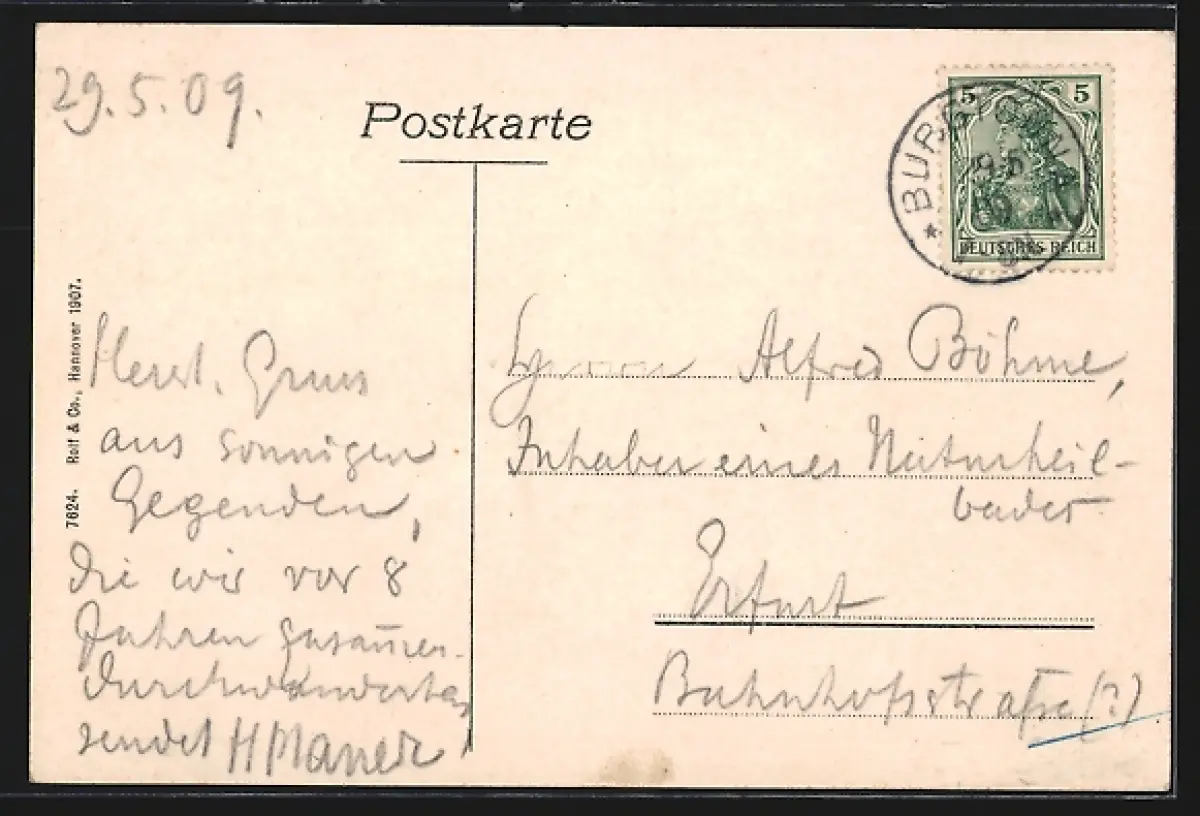 29.5.09.
Postkarte
5 5
DEUTSCHES REICH
29.5
09
7624. Rolf & Co., Hannover 1907.
Herzl. Gruss
aus sonnigen
Gegenden,
die wir vor 8
Jahren zusam̅en-
durchwanderten
sendet
Herrn Alfred Böhme,
Inhaber eines Naturheil-
bades
Erfurt
Bahnhofstraße (?)